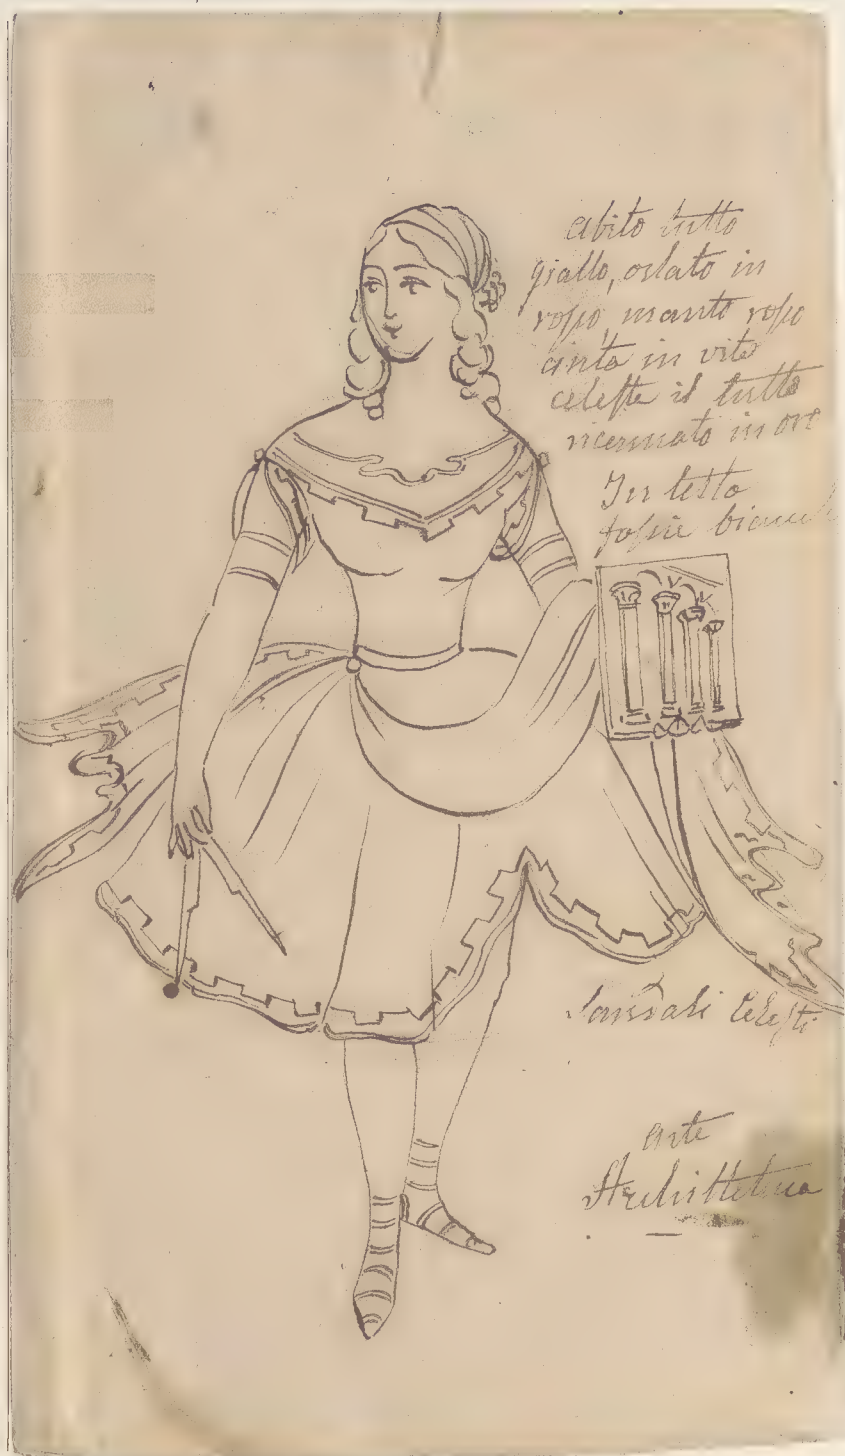 abito tutto
giallo, orlato in
rosso, manto rosso
cinta in vita
celeste il tutto
ricamato in oro
In testa
fascie bianche
Sandali Celesti
Arte
Architettura